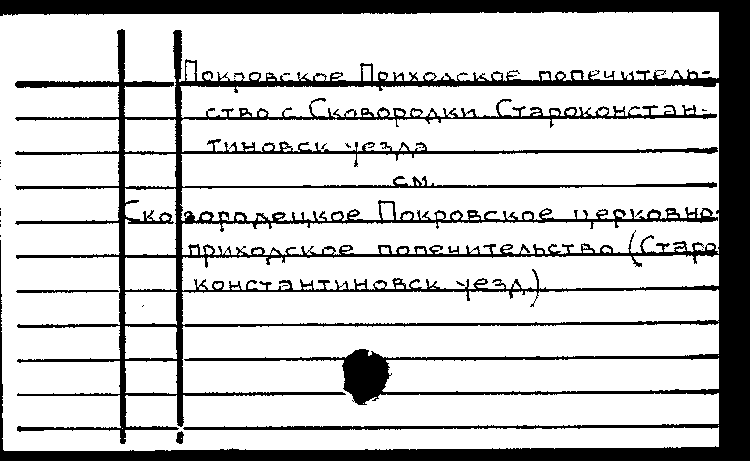 Покровское Приходское попечитель-
ство с. Сковородки. Староконстан-
тиновск уезда
см.
Сковородецкое Покровское церковно-
приходское попечительство (Старо-
константиновск уезд.)